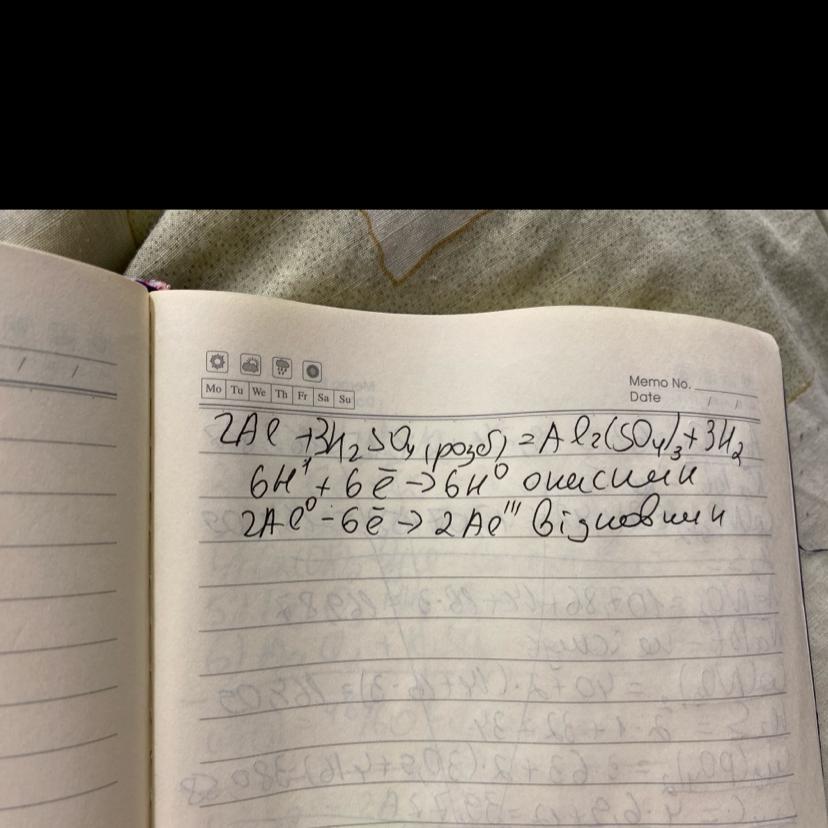 Mo Tu We Th Fr Sa Su
Memo No.
Date / /
2Al + 3H₂SO₄ (розб) = Al₂(SO₄)₃ + 3H₂
6H⁺ + 6ē → 6H⁰ окисник
2Al⁰ - 6ē → 2Al''' відновник